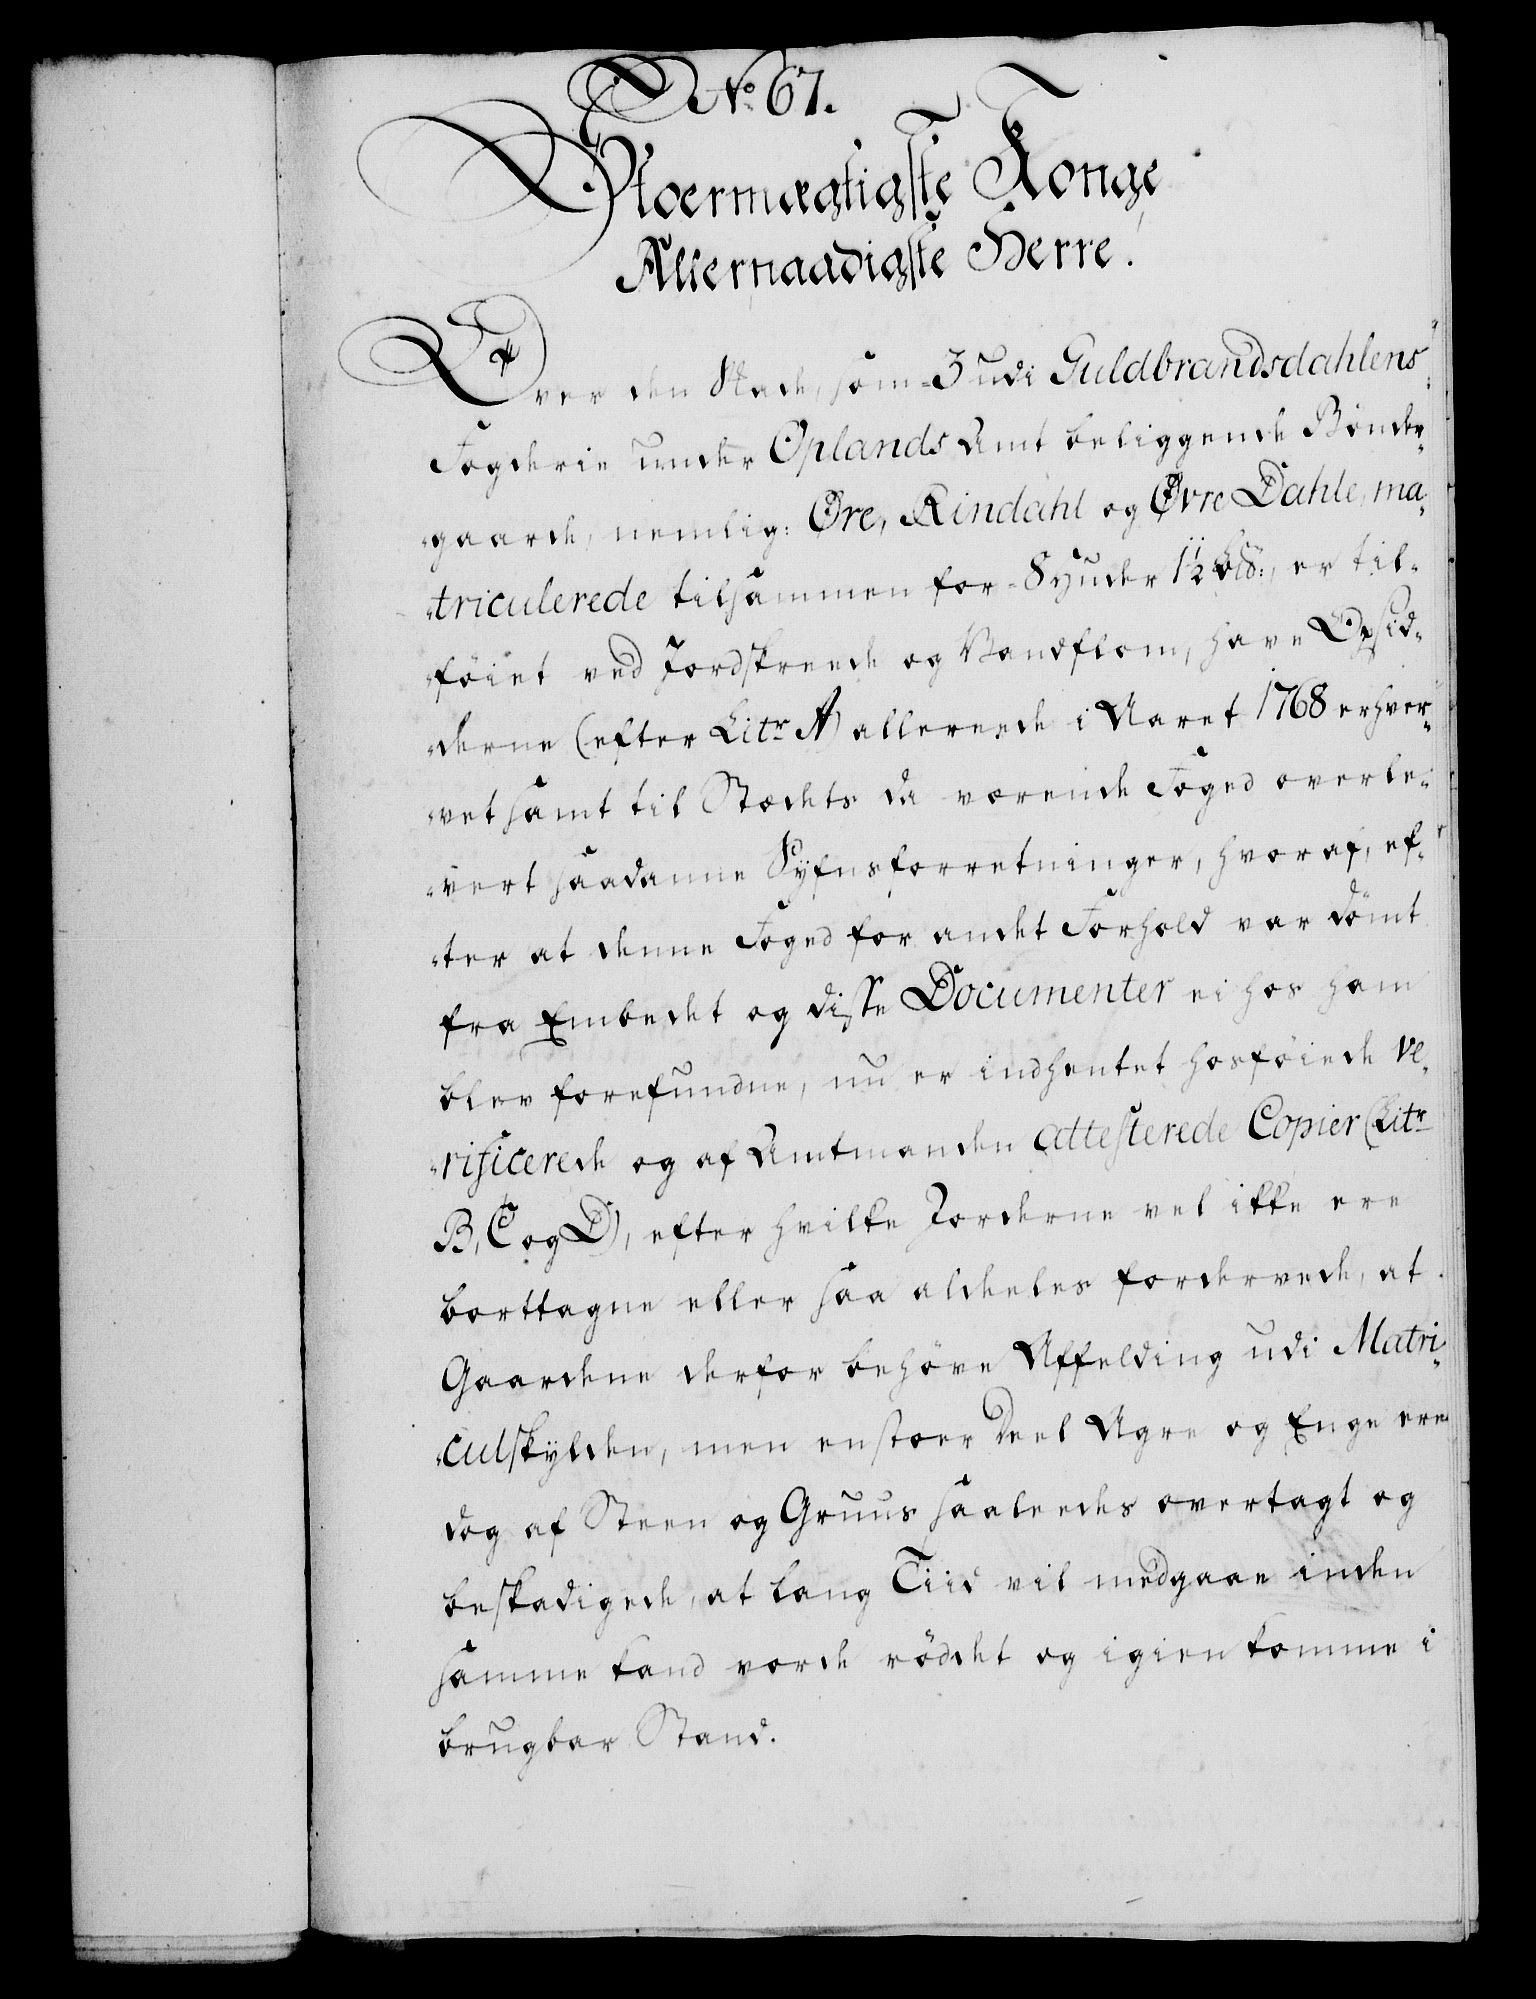 No. 67.
Stoermægtigste Konge
Allernaadigste Herre.
Over den Skade, som 3 udi Guldbrandsdahlens
Fogderie under Oplands Amt beliggende Bönder-
gaarde, nemlig: Øre, Rindahl og Øvre Dahle, ma-
triculerede tilsammen for 8 Huder 1½ , er til-
föiet ved Jordskreede og Vandflom, have Opsid-
derne (efter Litr A) allereede i Aaret 1768 erhver-
vet samt til Stædets da værende Foged overle-
vert saadanne Syfnsforretninger, hvoraf, ef-
ter at denne Foged for andet Forhold var dömt
fra Embedet og disse Documenter ei hos ham
blev forefundne, nu er indhentet hosföiede ve-
rificerede og af Amtmanden attesterede Copier (Litr
B, C og D), efter hvilke Jorderne vel ikke ere
borttagne eller saa aldeeles fordervede, at
Gaardene derfor behöve Affelding udi Matri-
culskylden, men en stoer Deel Agre og Enge ere
dog af Steen og Gruus saaleedes overtagt og
beskadigede, at lang Tiid vil medgaae inden
samme kand vorde röddet og igien komme i
brugbar Stand.